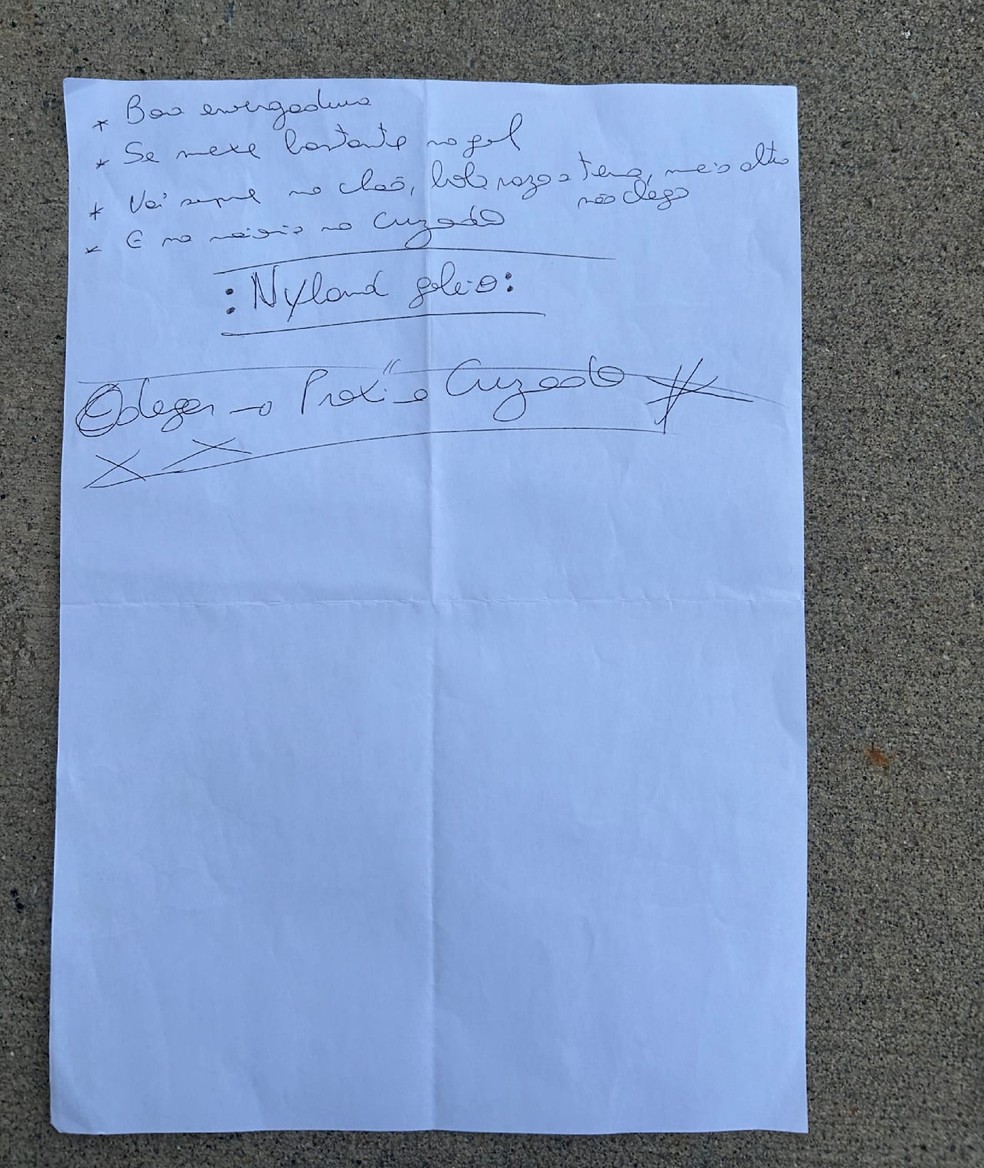 * Boa envergadura
* Se mexe bastante no gol
* Vai sempre no chão, bola razo a tenq, meio alto
não chega
* E na maioria no cruzado
: Nyland goleiro :
Odegar → Cruzado